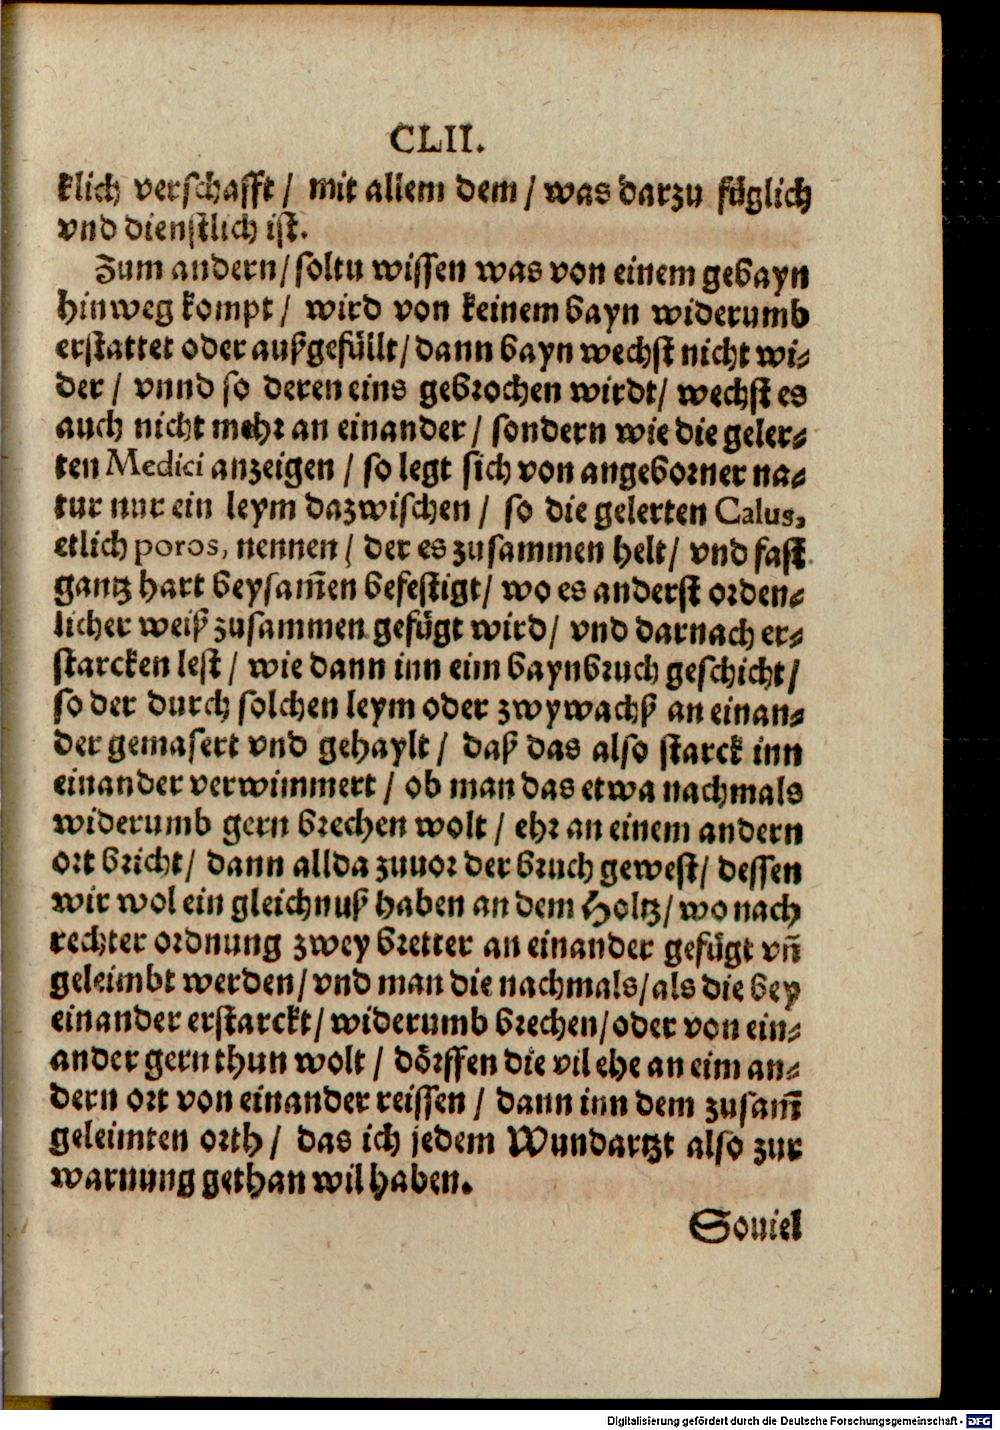 CLII.
klich verschafft / mit allem dem / was darzu füglich
vnd dienstlich ist.
Zum andern / soltu wissen was von einem gebayn
hinweg kompt / wird von keinem bayn widerumb
erstattet oder außgefüllt / dann bayn wechst nicht wi⸗
der / vnnd so deren eins gebrochen wirdt / wechst es
auch nicht mehr an einander / sondern wie die geler⸗
ten Medici anzeigen / so legt sich von angeborner na⸗
tur nur ein leym dazwischen / so die gelerten Calus,
etlich poros, nennen / der es zusammen helt / vnd fast
gantz hart beysam̄en befestigt / wo es anderst orden⸗
licher weiß zusammen gefügt wird / vnd darnach er⸗
starcken lest / wie dann inn eim baynbruch geschicht /
so der durch solchen leym oder zwywachß an einan⸗
der gemasert vnd gehaylt / daß das also starck inn
einander verwimmert / ob man das etwa nachmals
widerumb gern brechen wolt / ehr an einem andern
ort bricht / dann allda zuuor der bruch gewest / dessen
wir wol ein gleichnuß haben an dem Holtz / wo nach
rechter ordnung zwey bretter an einander gefügt vn̄
geleimbt werden / vnd man die nachmals / als die bey
einander erstarckt / widerumb brechen / oder von ein⸗
ander gern thun wolt / dörffen die vil ehe an eim an⸗
dern ort von einander reissen / dann inn dem zusam̄
geleimten orth / das ich jedem Wundartzt also zur
warnung gethan wil haben.
Souiel
Digitalisierung gefördert durch die Deutsche Forschungsgemeinschaft - DFG